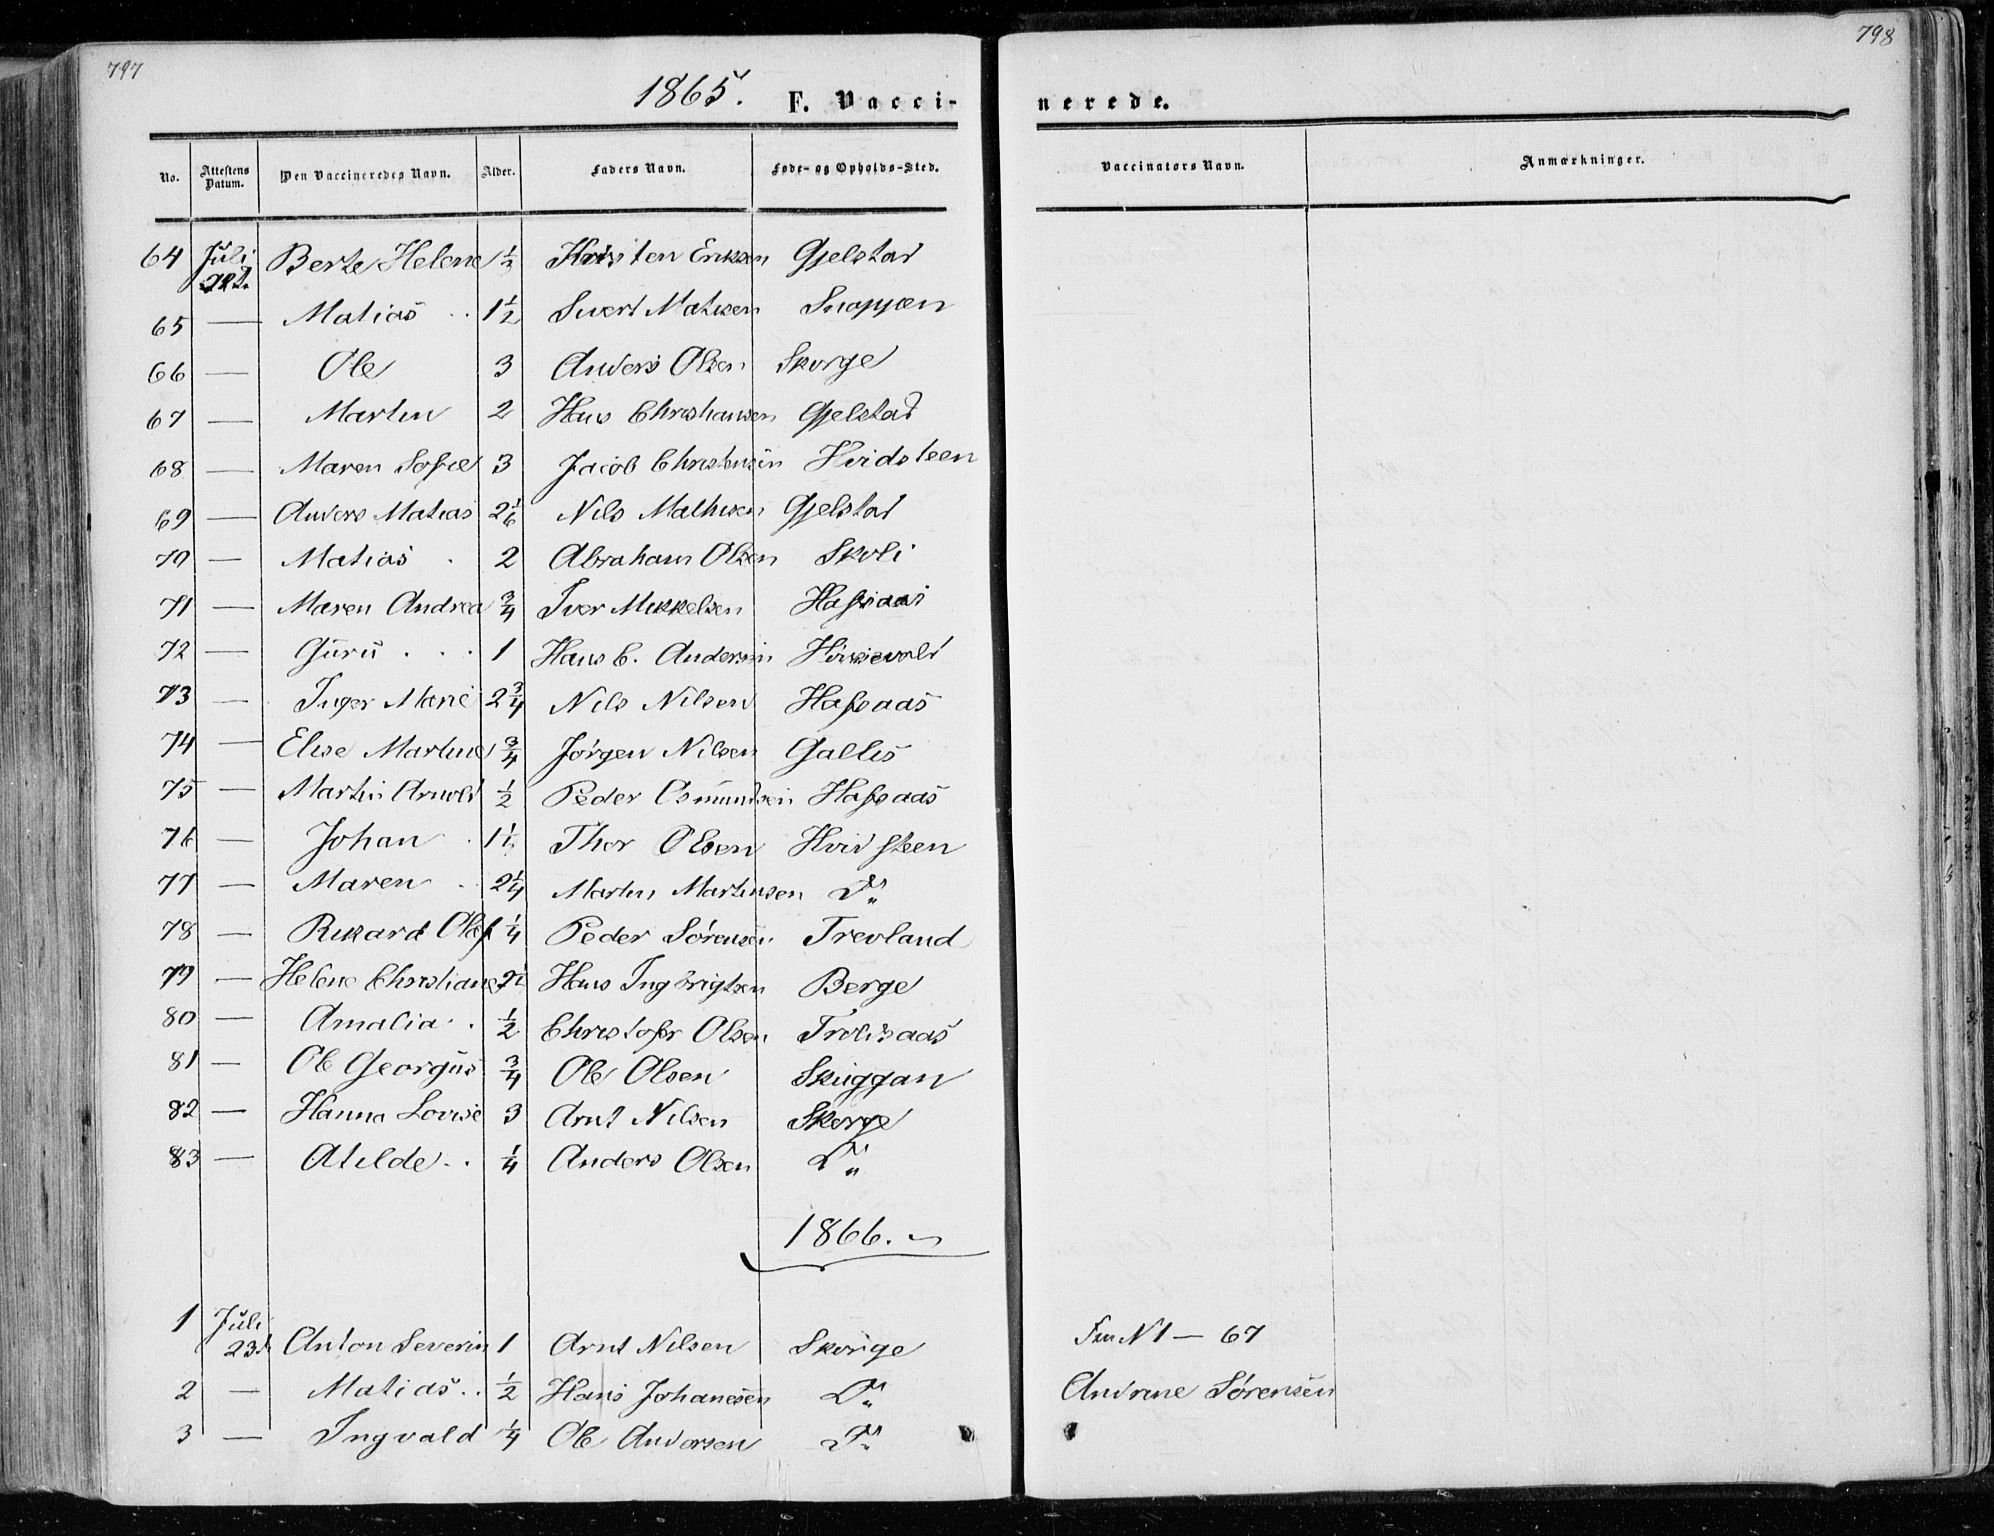 797
798
1865. F. Vacci-
nerede.
No. Attestens Datum. Den Vaccineredes Navn. Alder. Faders Navn. Føde- og Opholds-Sted. Vaccinators Navn. Anmærkninger.
64 Juli Berte Helene ½ Eriksen Gjelstad
65 — Matias 1½ Sivert Matisen Snoppen
66 — Ole 3 Anders Olsen Skorge
67 — Martin 2 Hans Christiansen Gjelstad
68 — Maren Sofie 3 Jacob Christensen Hvidsteen
69 — Anders Matias 2 1/6 Nils Mathisen Gjelstad
70 — Matias 2 Abraham Olsen Skoli
71 — Maren Andrea ¾ Iver Mikkelsen
72 — Guru 1 Hans C. Andersen
73 — Inger Marie 2¾ Nils Nilsen Hafsaas
74 — Elise Martine ¾ Jørgen Nilsen Gallis
75 — Martin Arnold ½ Peder Osmundsen Hafsaas
76 — Johan Thor Olsen Hvidsteen
77 — Maren 2¼ Martin Martinsen Do
78 — Rikard Olaf ¼ Peder Sørensen Trevland
79 — Helene Christiane Hans Ingbrigtsen Berge
80 — Amalia ½ Christofer Olsen Troldsaas
81 — Ole Georgus ¾ Ole Olsen Skuggan
82 — Hanna Lovise 3 Arnt Nilsen Skorge
83 — Atilde ¼ Anders Olsen Do
1866.
1 Juli 23d Anton Severin 1 Arnt Nilsen Skorge Fra N 1 — 67
2 — Matias ½ Hans Johanesen Do Andrine Sørensen
3 — Ingvald ¼ Ole Andersen Do